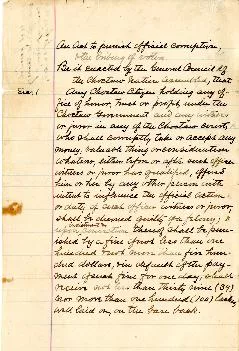 An act to punish official corruption,
the bribing of voters.
Be it enacted by the General Council of
the Choctaw Nation assembled, that
Sec. 1 Any Choctaw Citizen holding any of-
fice of honor, trust or profit under the
Choctaw Government and any witness
or juror in any of the Choctaw courts,
who shall corruptly take or accept any
money, valuable thing or consideration
whatever, either before or after such officer
witness or juror has qualified, offered
him or her by any other person with
intent to influence the official action
or duty of such officer witness or juror,
shall be deemed guilty of a felony; &
upon conviction thereof shall be pun-
ished by a fine of not less than one
hundred nor more than five hun-
dred dollars, in default of the pay-
ment of such fine for one day, shall
receive not less than thirty nine (39)
nor more than one hundred (100) lashes
well laid on, on the bare back.